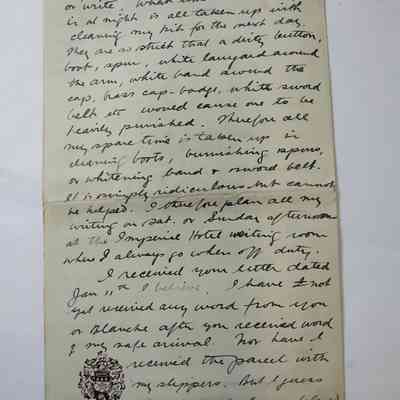 or write. What
is at night is all taken up with
cleaning my kit for the next day.
They are so strict that a dirty button,
boot, spur, white lanyard around
the arm, white band around the
cap, brass cap-badge, white sword
belt etc would cause one to be
heavily punished. Therefore all
my spare time is taken up in
cleaning boots, burnishing spurs,
or whitening band & sword belt.
It is simply ridiculous but cannot
be helped. I therefore plan all my
writing on Sat. or Sunday afternoon
at the Imperial Hotel writing room
where I always go when off duty.
I received your letter dated
Jan 11th I believe. I have not
yet received any word from you
or Blanche after you received word
of my safe arrival. Nor have I
received the parcel with
my slippers. But I guess